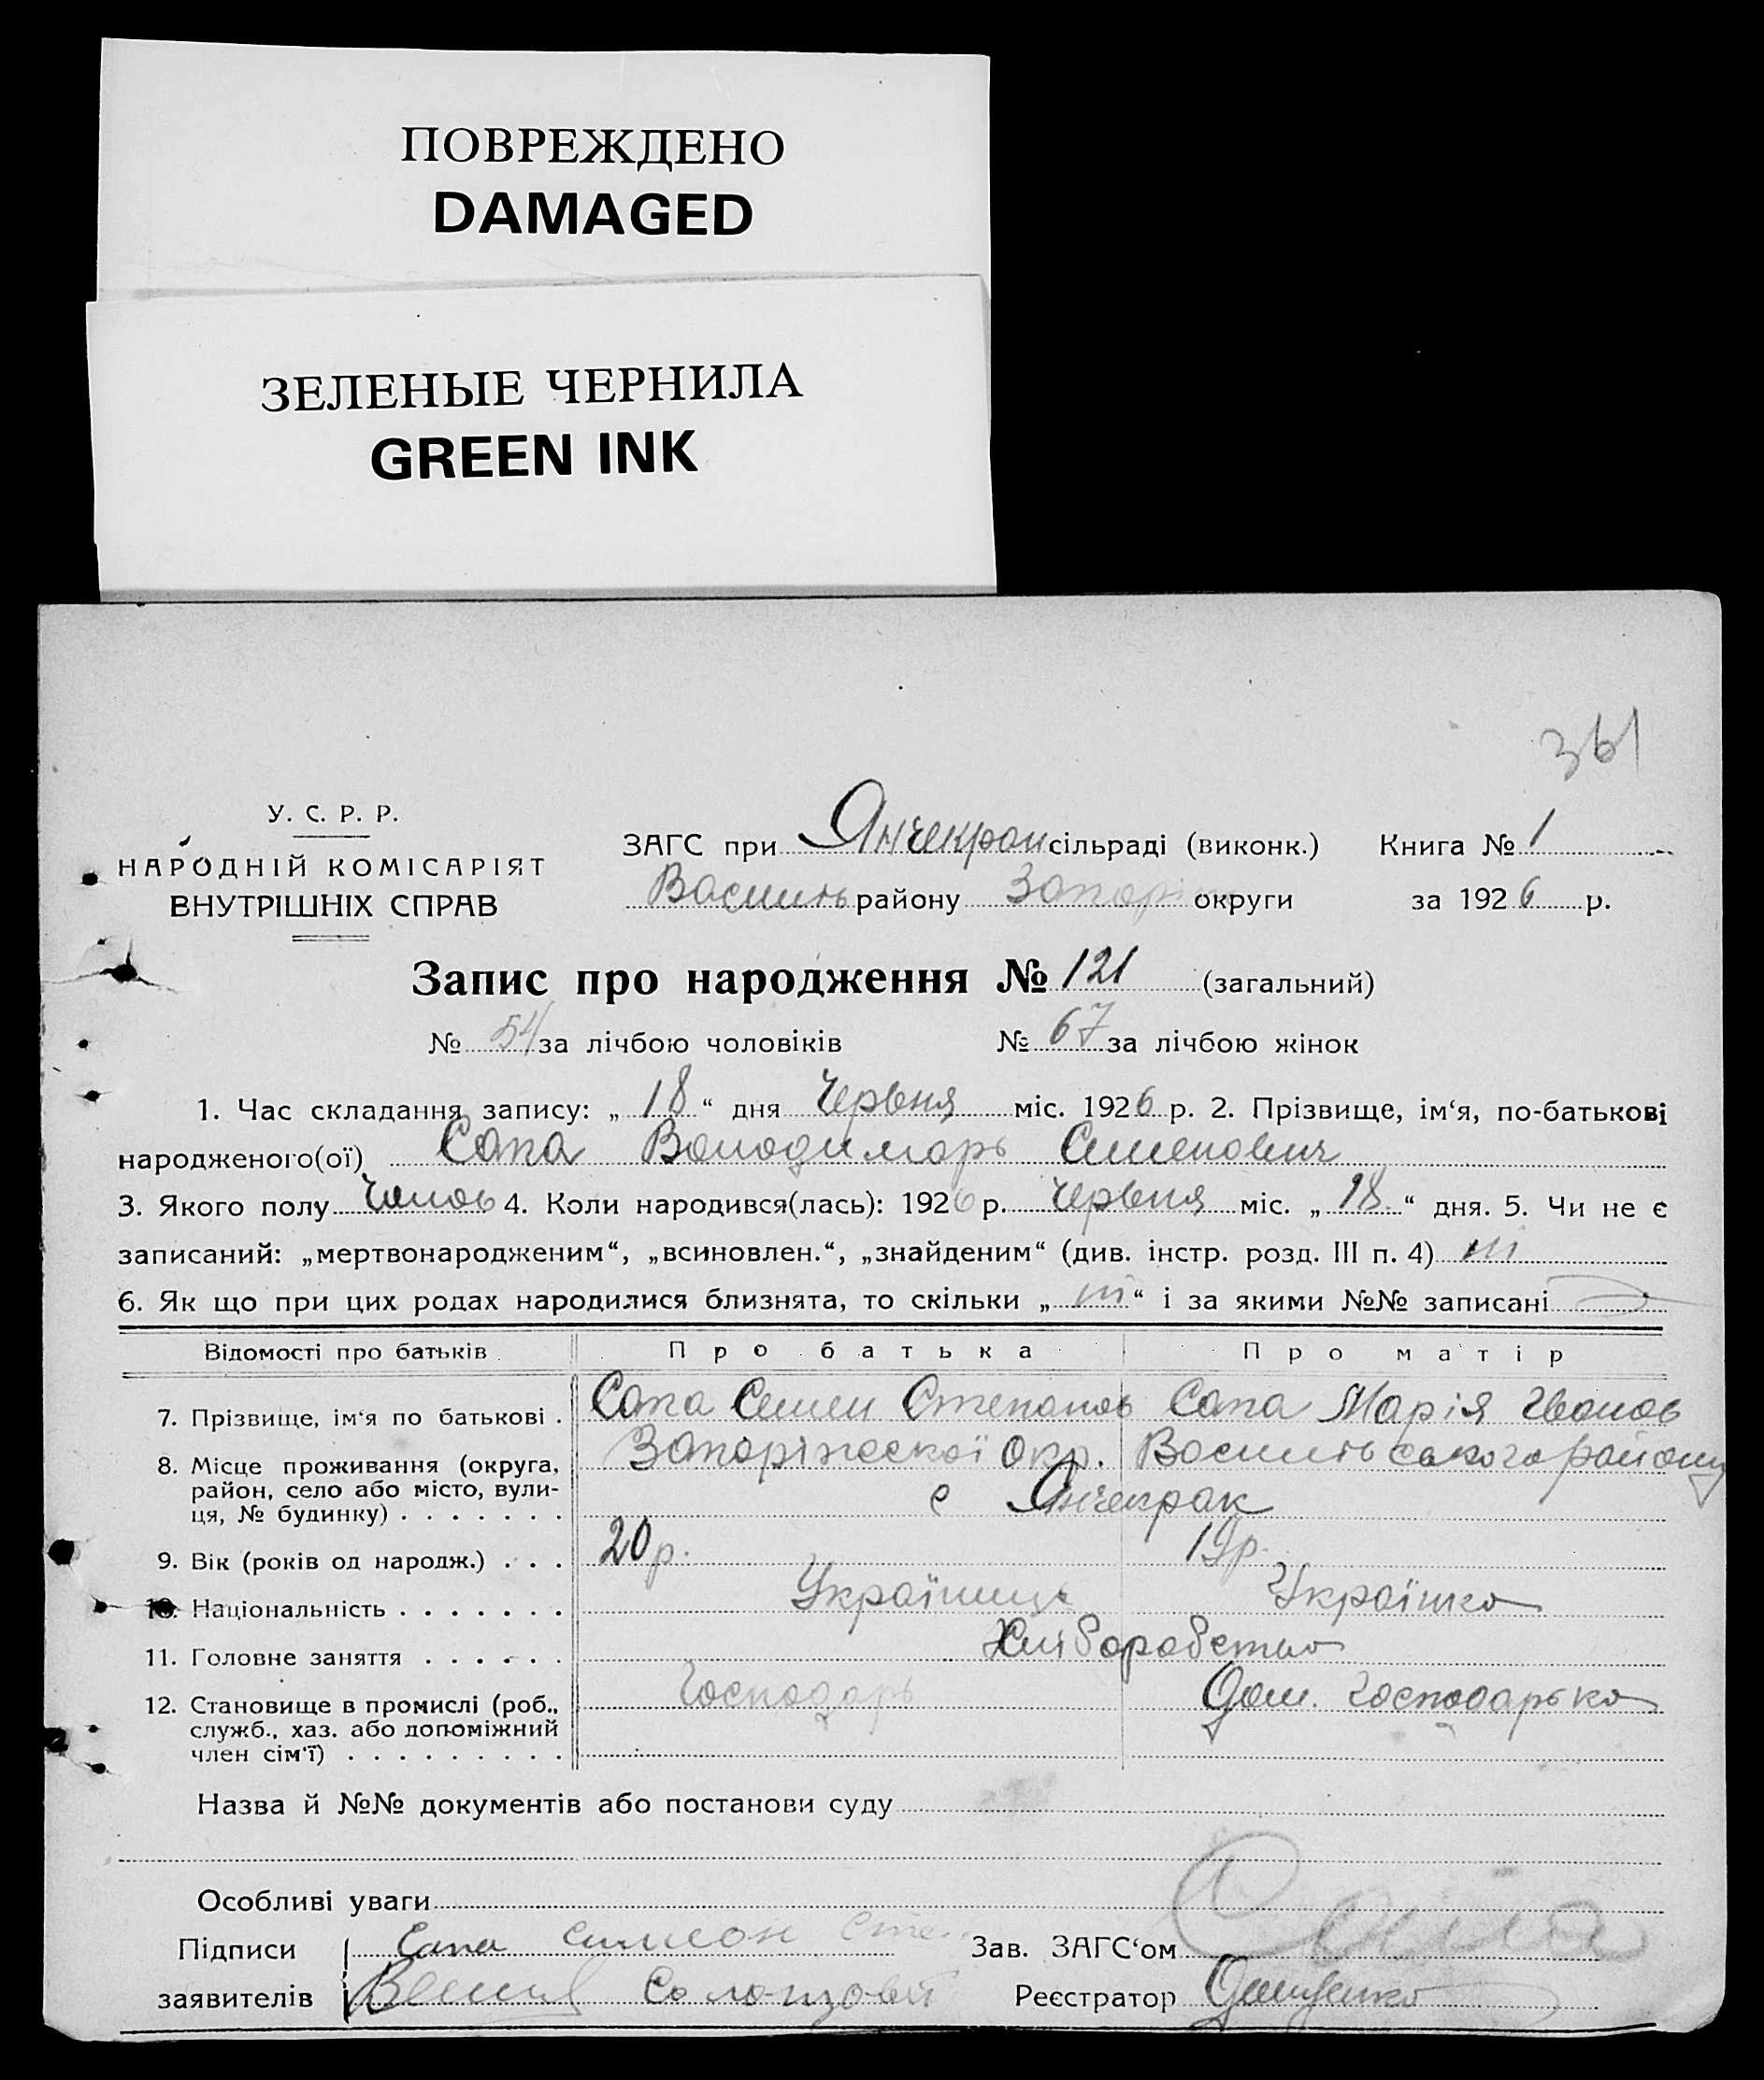 ПОВРЕЖДЕНО
DAMAGED
ЗЕЛЕНЫЕ ЧЕРНИЛА
GREEN INK
361
У. С. Р. Р.
НАРОДНІЙ КОМІСАРІЯТ
ВНУТРІШНІХ СПРАВ
ЗАГС при Янчекрак сільраді (виконк.) Книга № 1
Василь району Запоріж округи за 1926 р.
Запис про народження № 121 (загальний)
№ 54 за лічбою чоловіків № 67 за лічбою жінок
1. Час складання запису: „ 18 “ дня Червня міс. 1926 р. 2. Прізвище, ім‘я, по-батькові
народженого(ої) Сапа Володимарь Семенович
3. Якого полу Чолов 4. Коли народився(лась): 1926 р. Червня міс. „ 18. “ дня. 5. Чи не є
записаний: „мертвонародженим“, „всиновлен.“, „знайденим“ (див. інстр. розд. III п. 4) ні
6. Як що при цих родах народилися близнята, то скільки „ ні “ і за якими №№ записані
Відомості про батьків Про батька Про матір
7. Прізвище, ім‘я по батькові . Сапа Семен Степанов Сапа Марія Іванов
8. Місце проживання (округа, Запоріжської окр. Васильевского району
район, село або місто, вули- с Янчекрак
ця, № будинку) . . . . . . .
9. Вік (років од народж.) . . . 20 р. 19 р.
10. Національність . . . . . . . Українець Українка
11. Головне заняття . . . . . . Хліборобство
12. Становище в промислі (роб., Господарь Дом. господарька
служб., хаз. або допоміжний
член сім‘ї) . . . . . . . . .
Назва й №№ документів або постанови суду
Особливі уваги
Підписи Сапа Симеон Зав. ЗАГС‘ом
заявителів Реєстратор